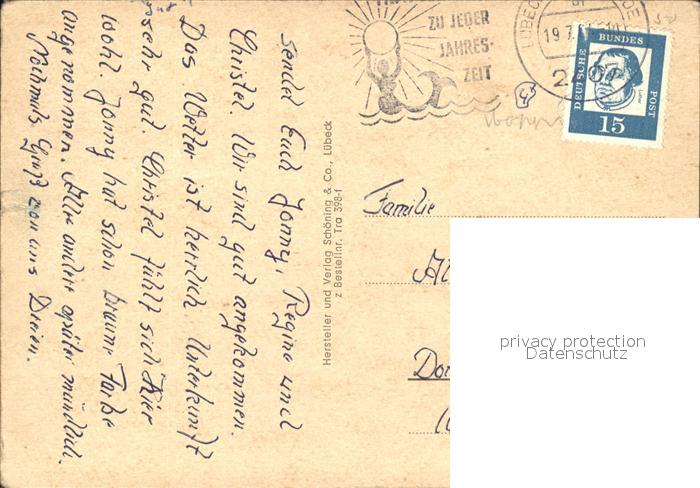 sendet Euch Jonny, Regine und
Christel. Wir sind gut angekommen.
Das Wetter ist herrlich. Unterkunft
sehr gut. Christel fühlt sich hier
wohl. Jonny hat schon braune Farbe
angenommen. Alles andere später mündlich.
Nochmals Gruß von uns Dreien.
Hersteller und Verlag Schöning & Co., Lübeck
z Bestellnr. Tra 398-f
ZU JEDER
JAHRES-
ZEIT
LÜBECK
19.7.
DEUTSCHE
BUNDES
POST
15
Familie
Al
Do
privacy protection
Datenschutz